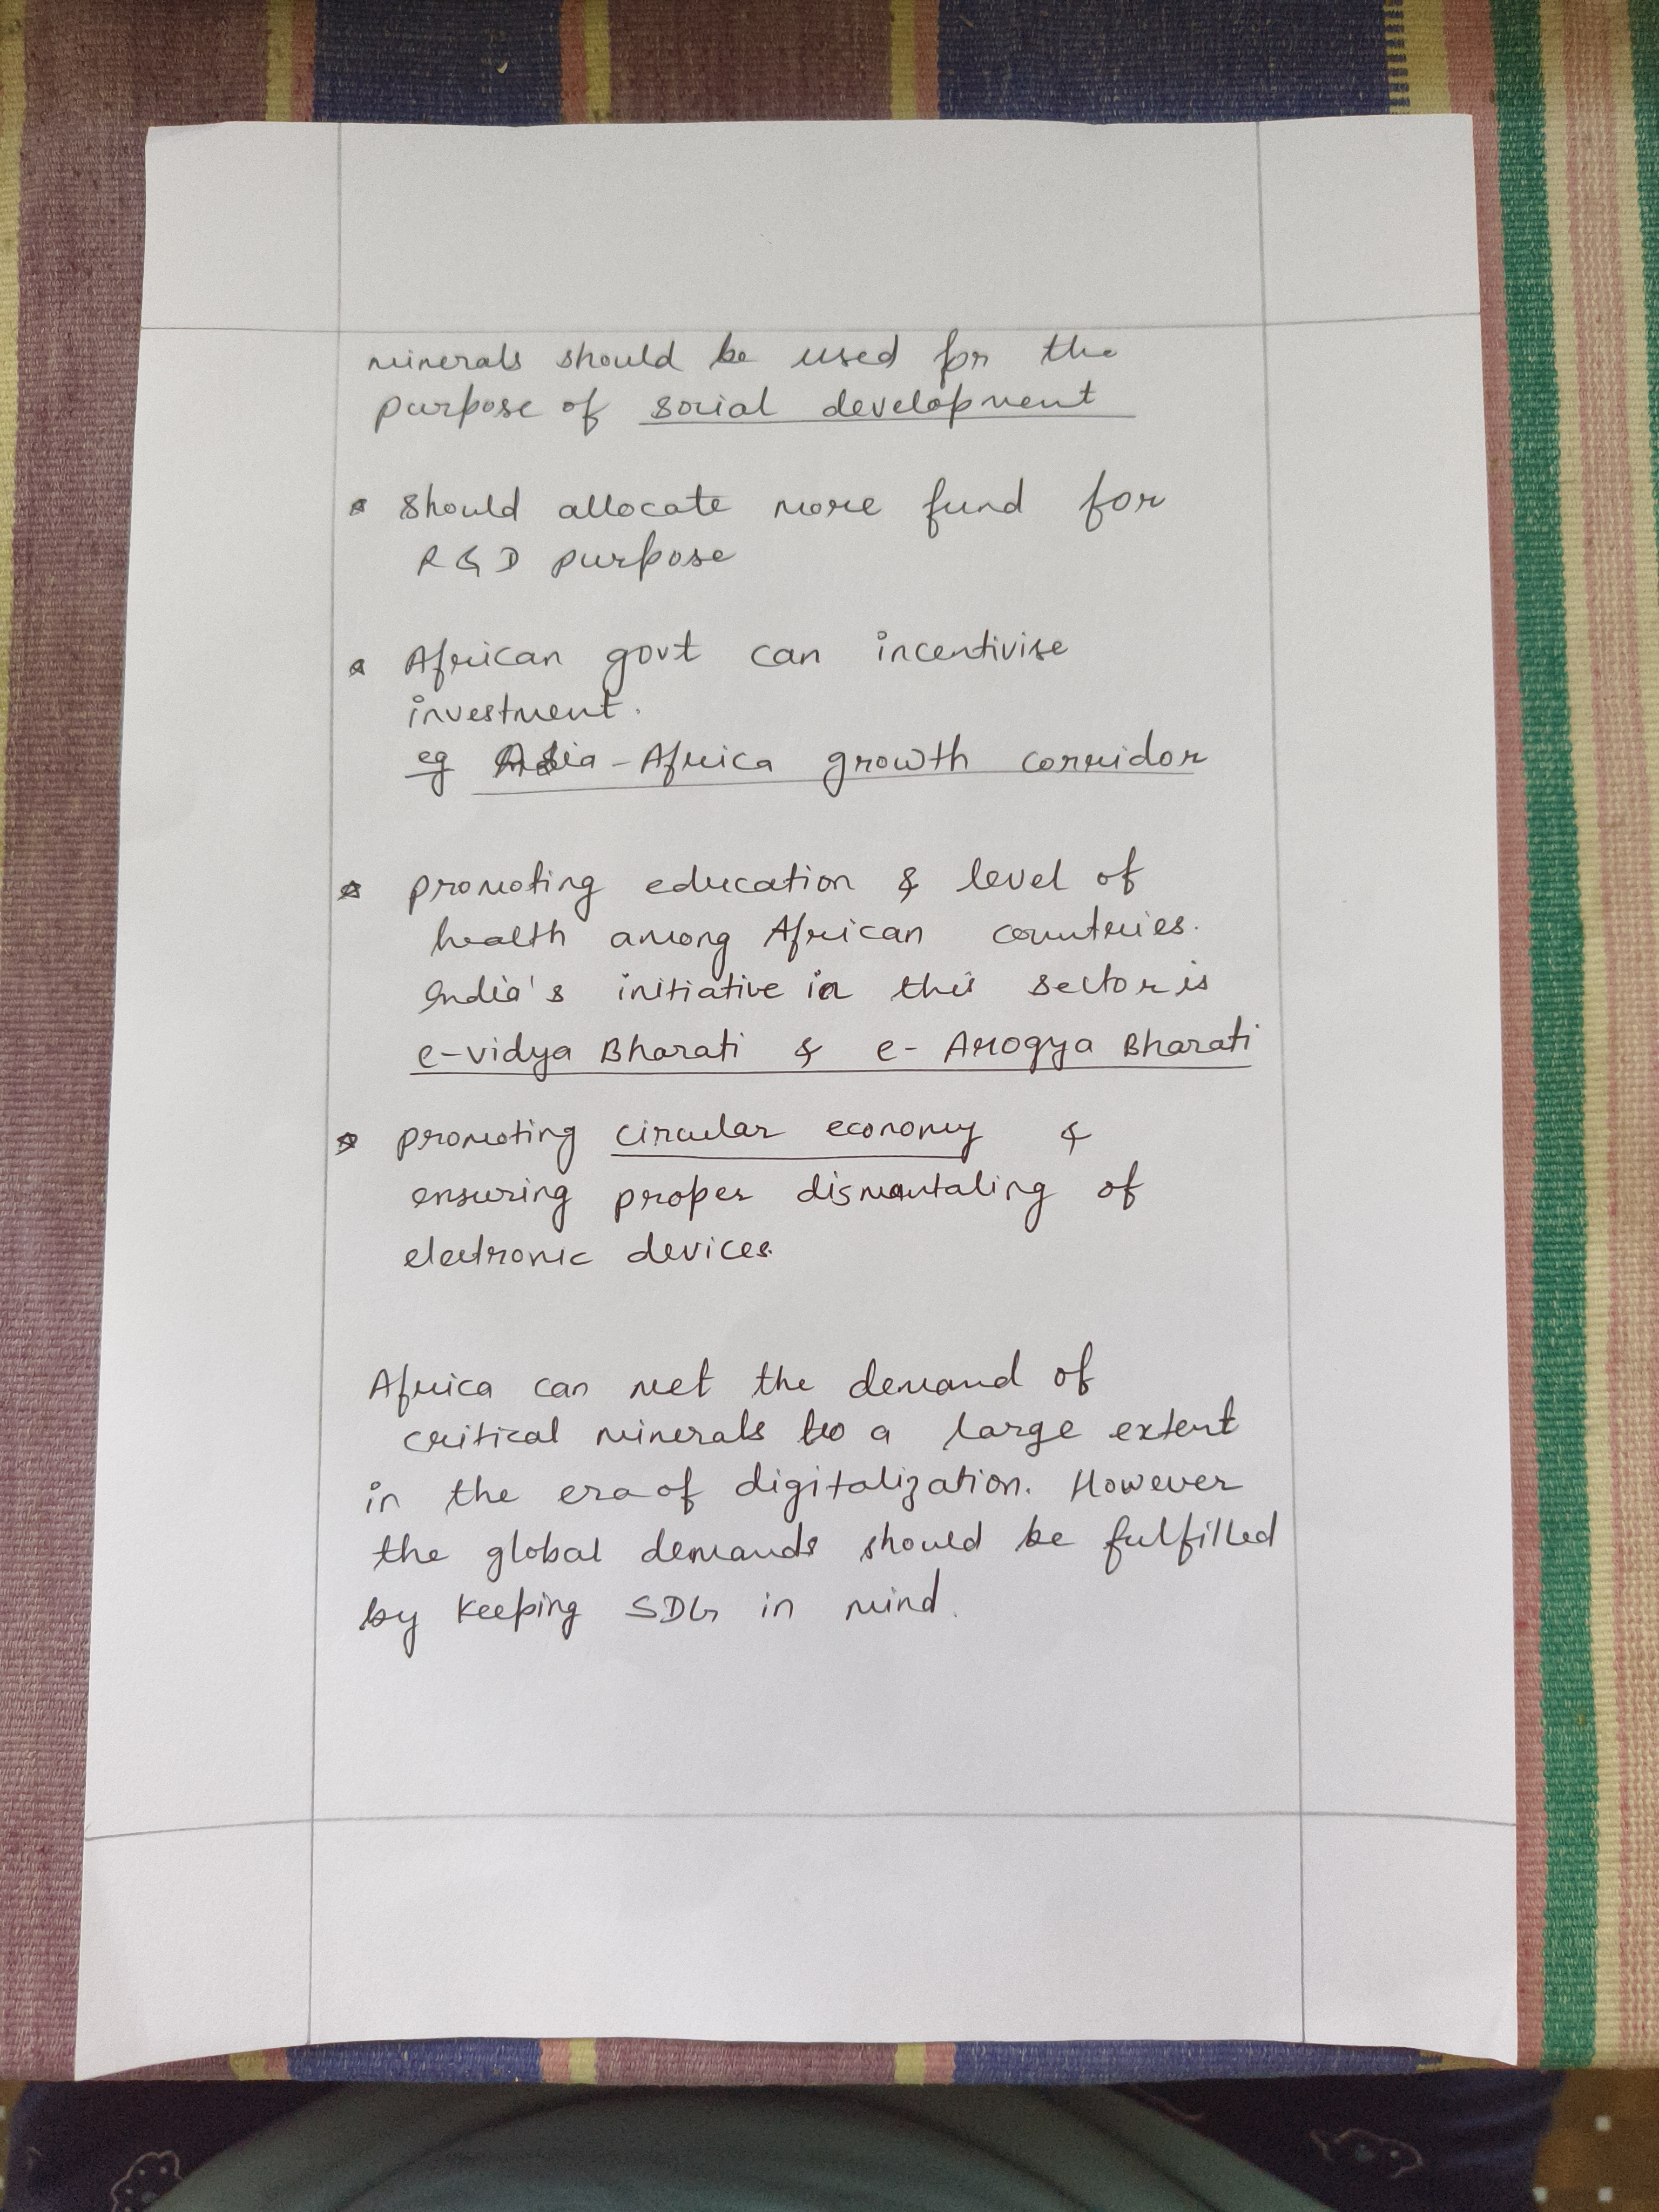 minerals should be used for the
purpose of social development
* Should allocate more fund for
R & D purpose
* African govt can incentivise
investment.
eg Asia-Africa growth corridor
* promoting education & level of
health among African countries.
India's initiative in this sector is
e-vidya Bharati & e-Arogya Bharati
* promoting circular economy &
ensuring proper dismantaling of
electronic devices.
Africa can met the demand of
critical minerals to a large extent
in the era of digitalization. However
the global demands should be fulfilled
by keeping SDG in mind.